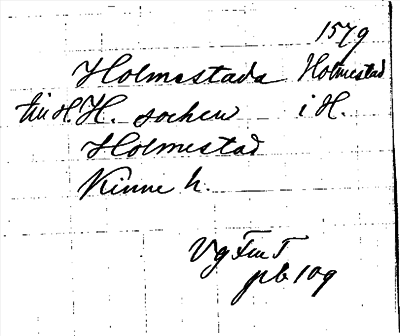 1579
Holmestada Holmestad
H. sochen i H.
Holmestad
Kinne h.
Vg Fru T
pb 109